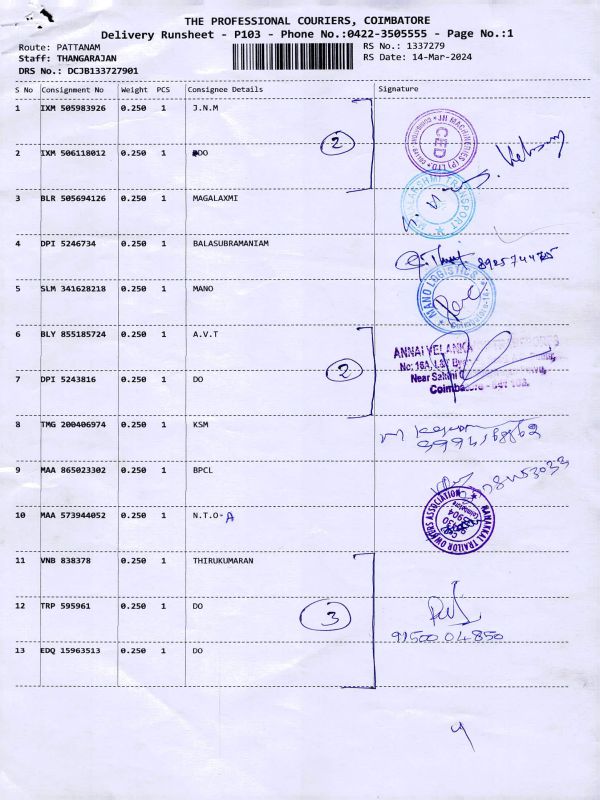 THE PROFESSIONAL COURIERS, COIMBATORE
Delivery Runsheet - P103 - Phone No.:0422-3505555 - Page No.:1
Route: PATTANAM RS No.: 1337279
Staff: THANGARAJAN RS Date: 14-Mar-2024
DRS No.: DCJB133727901
S No Consignment No Weight PCS Consignee Details Signature
1 IXM 505983926 0.250 1 J.N.M
JN MACHINERIES (P) LTD. CED
2 IXM 506118012 0.250 1 DO 2
3 BLR 505694126 0.250 1 MAGALAXMI
TRANSPORT
4 DPI 5246734 0.250 1 BALASUBRAMANIAM
8925744725
5 SLM 341628218 0.250 1 MANO
MANO LOGISTICS
6 BLY 855185724 0.250 1 A.V.T
ANNAI VELANKA
No: 16A, L&T By
7 DPI 5243816 0.250 1 DO 2
Near Salini
Coimbatore
8 TMG 200406974 0.250 1 KSM
9 MAA 865023302 0.250 1 BPCL
10 MAA 573944052 0.250 1 N.T.O-A
NAMAKKAL TRAILOR OWNERS ASSOCIATION
11 VNB 838378 0.250 1 THIRUKUMARAN
12 TRP 595961 0.250 1 DO 3
91500 04850
13 EDQ 15963513 0.250 1 DO